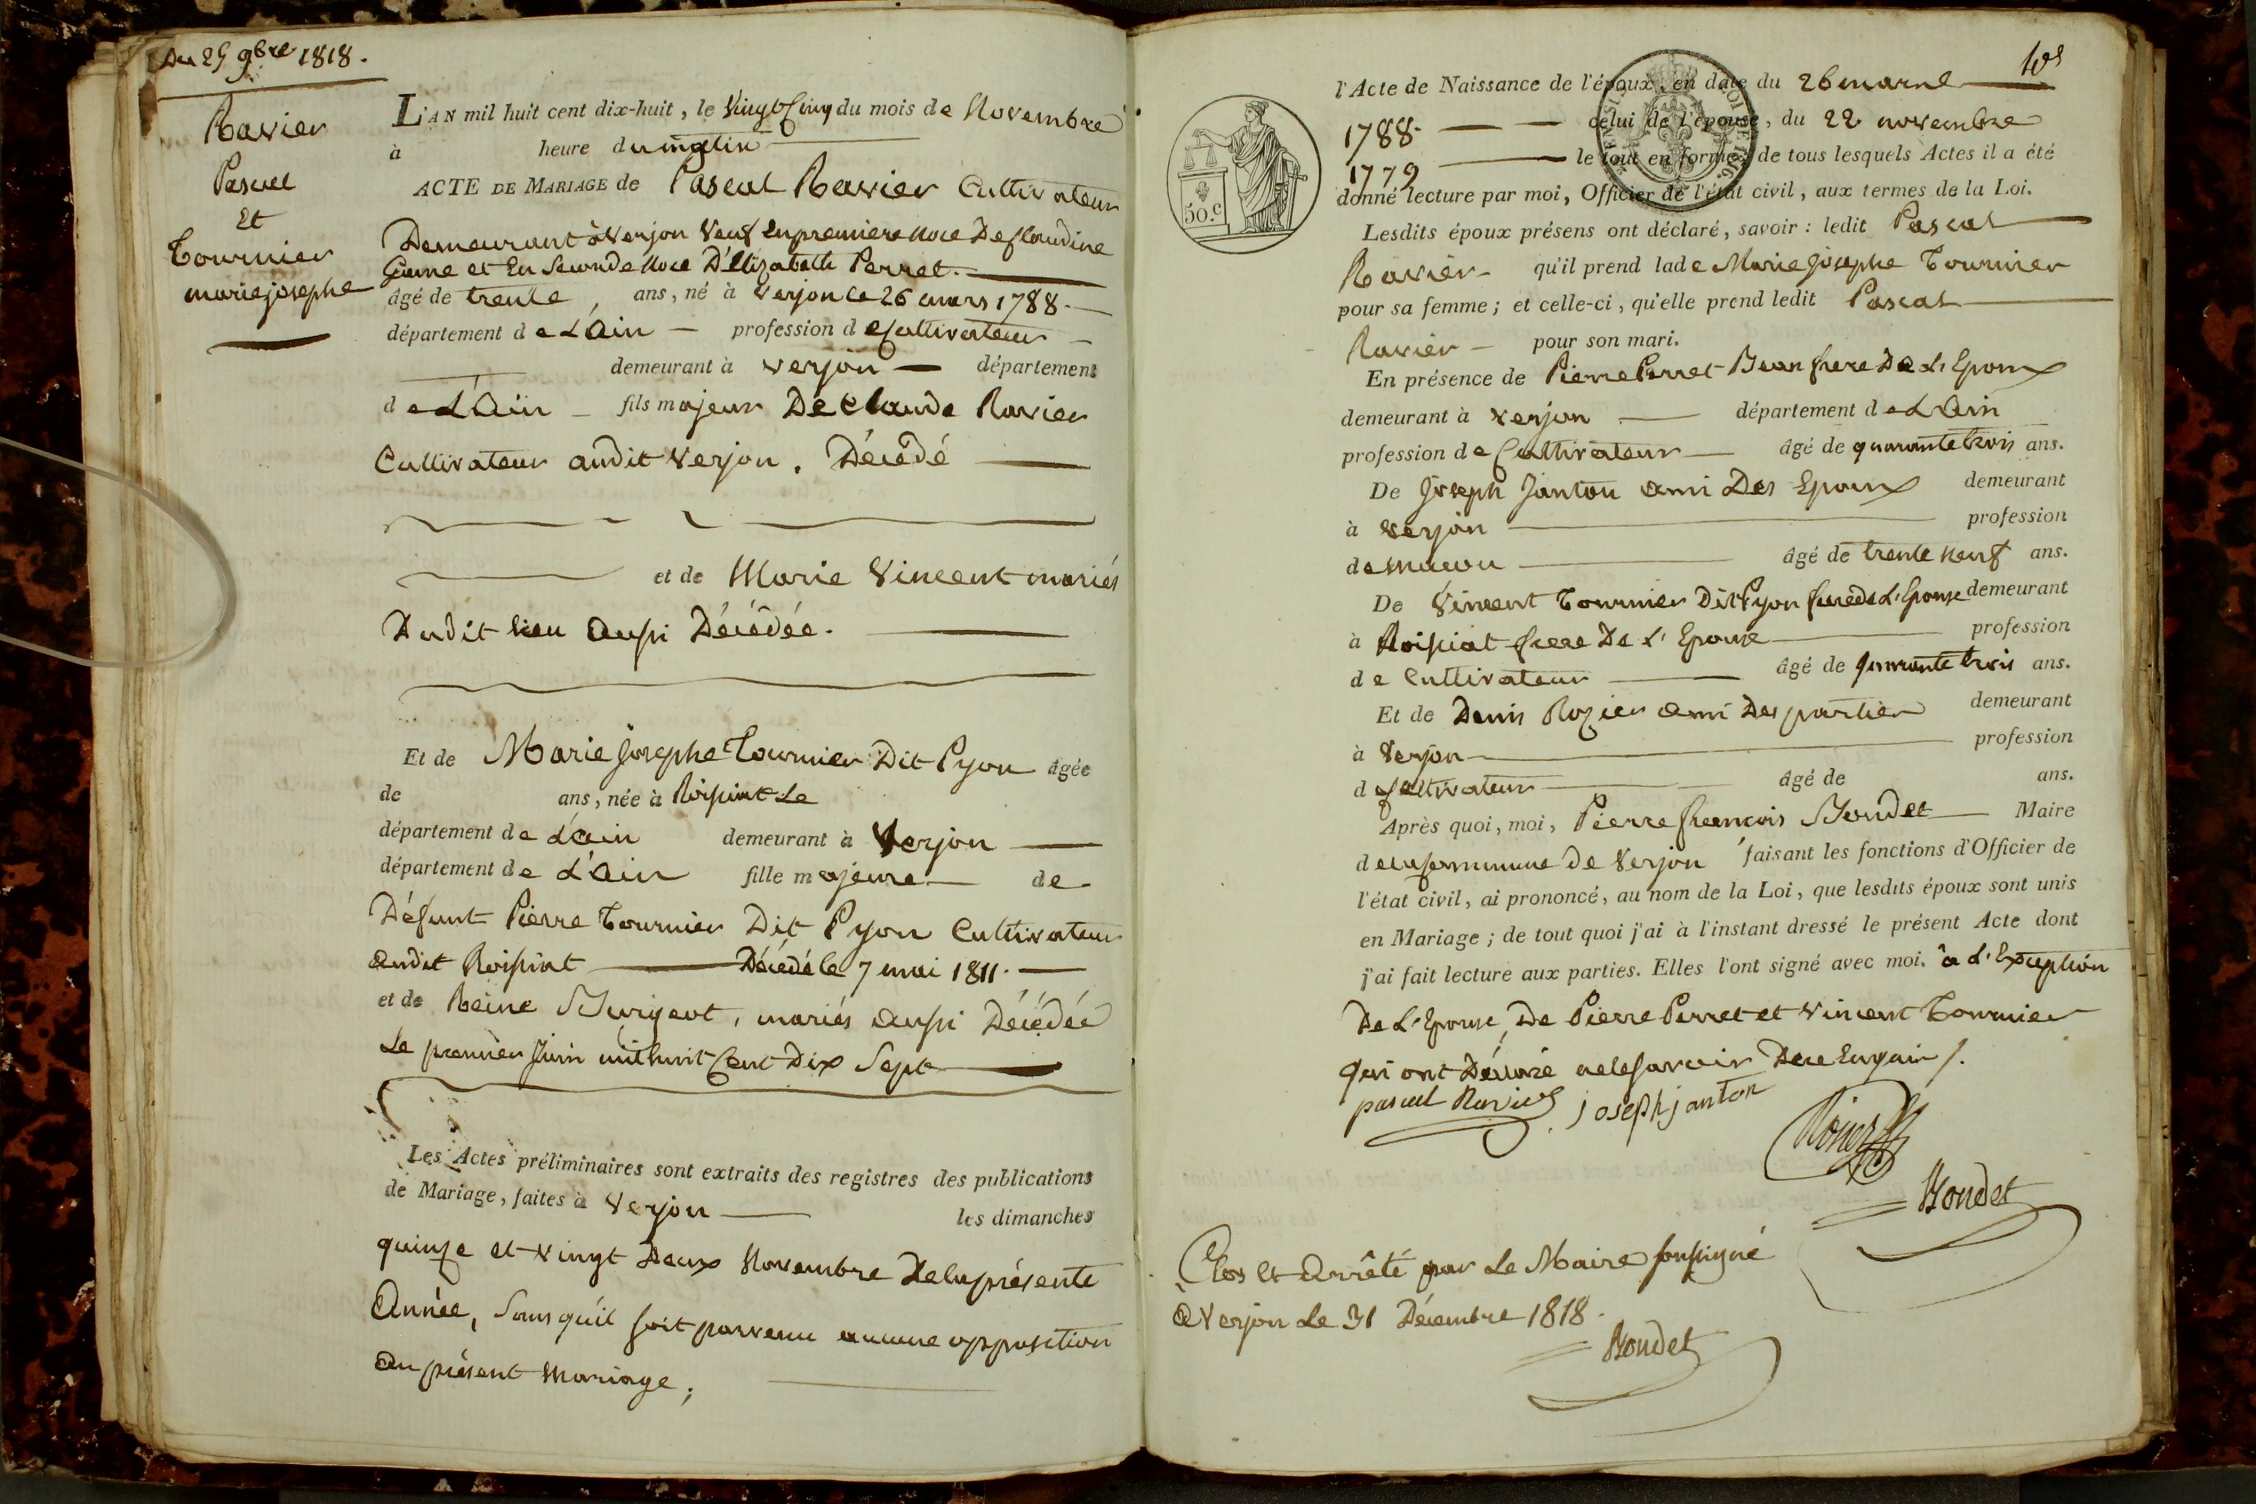 Du 25 9bre 1818.
Ravier
Pascal
Et
Tournier
marie josephe
L'AN mil huit cent dix-huit, le Vingt Cinq du mois de Novembre
à heure du matin
ACTE DE MARIAGE de Pascal Ravier Cultivateur
Demeurant à Verjon Veuf en premiere noce De Claudine
et En Seconde noce D'Elizabeth Perret.
âgé de trente, ans, né à Verjon le 26 mars 1788.
département de L'Ain profession de Cultivateur
demeurant à Verjon département
de L'Ain fils majeur De Claude Ravier
Cultivateur audit Verjon. Décédé
et de Marie Vincent mariés
Dudit lieu aussi Décédée.
Et de Marie Josephe Tournier Dit Pyon âgée
de ans, née à Roissiat Le
département de L'ain demeurant à Verjon
département de L'ain fille majeure de
Défunt Pierre Tournier Dit Pyon Cultivateur
audit Roissiat Décédé le 7 mai 1811.
et de Reine mariés aussi Décédée
Le premier Juin mil huit Cent Dix Sept
Les Actes préliminaires sont extraits des registres des publications
de Mariage, faites à Verjon les dimanches
quinze et vingt Deux Novembre De la présente
Année, Sans qu'il soit parvenu aucune opposition
au présent mariage;
50.c
l'Acte de Naissance de l'époux, en date du 26 mars
1788. celui de l'épouse, du 22 novembre
1779 le tout en forme; de tous lesquels Actes il a été
donné lecture par moi, Officier de l'état civil, aux termes de la Loi.
Lesdits époux présens ont déclaré, savoir: ledit Pascal
Ravier qu'il prend lade Marie Josephe Tournier
pour sa femme; et celle-ci, qu'elle prend ledit Pascal
Ravier pour son mari.
En présence de Pierre Perret Beau frere De L'Epoux
demeurant à Verjon département de L'Ain
profession de Cultivateur âgé de quarante trois ans.
De Joseph Janton ami Des Epoux demeurant
à Verjon profession
de macon âgé de trente neuf ans.
De Vincent Tournier Dit Pyon frere de L'Epouse demeurant
à Roissiat frere De L'Epouse profession
de Cultivateur âgé de quarante trois ans.
Et de Denis Rozier ami Des parties demeurant
à Verjon profession
de Cultivateur âgé de ans.
Après quoi, moi, Pierre francois Bondet Maire
de la Commune de Verjon faisant les fonctions d'Officier de
l'état civil, ai prononcé, au nom de la Loi, que lesdits époux sont unis
en Mariage; de tout quoi j'ai à l'instant dressé le présent Acte dont
j'ai fait lecture aux parties. Elles l'ont signé avec moi. à L'Exception
De L'Epouse, De Pierre Perret et Vincent Tournier
qui ont Déclaré ne le savoir De ce Enquis /.
pascal Ravier joseph janton
Bondet
Clos et Arrêté par Le Maire soussigné
a Verjon Le 31 Décembre 1818.
Bondet